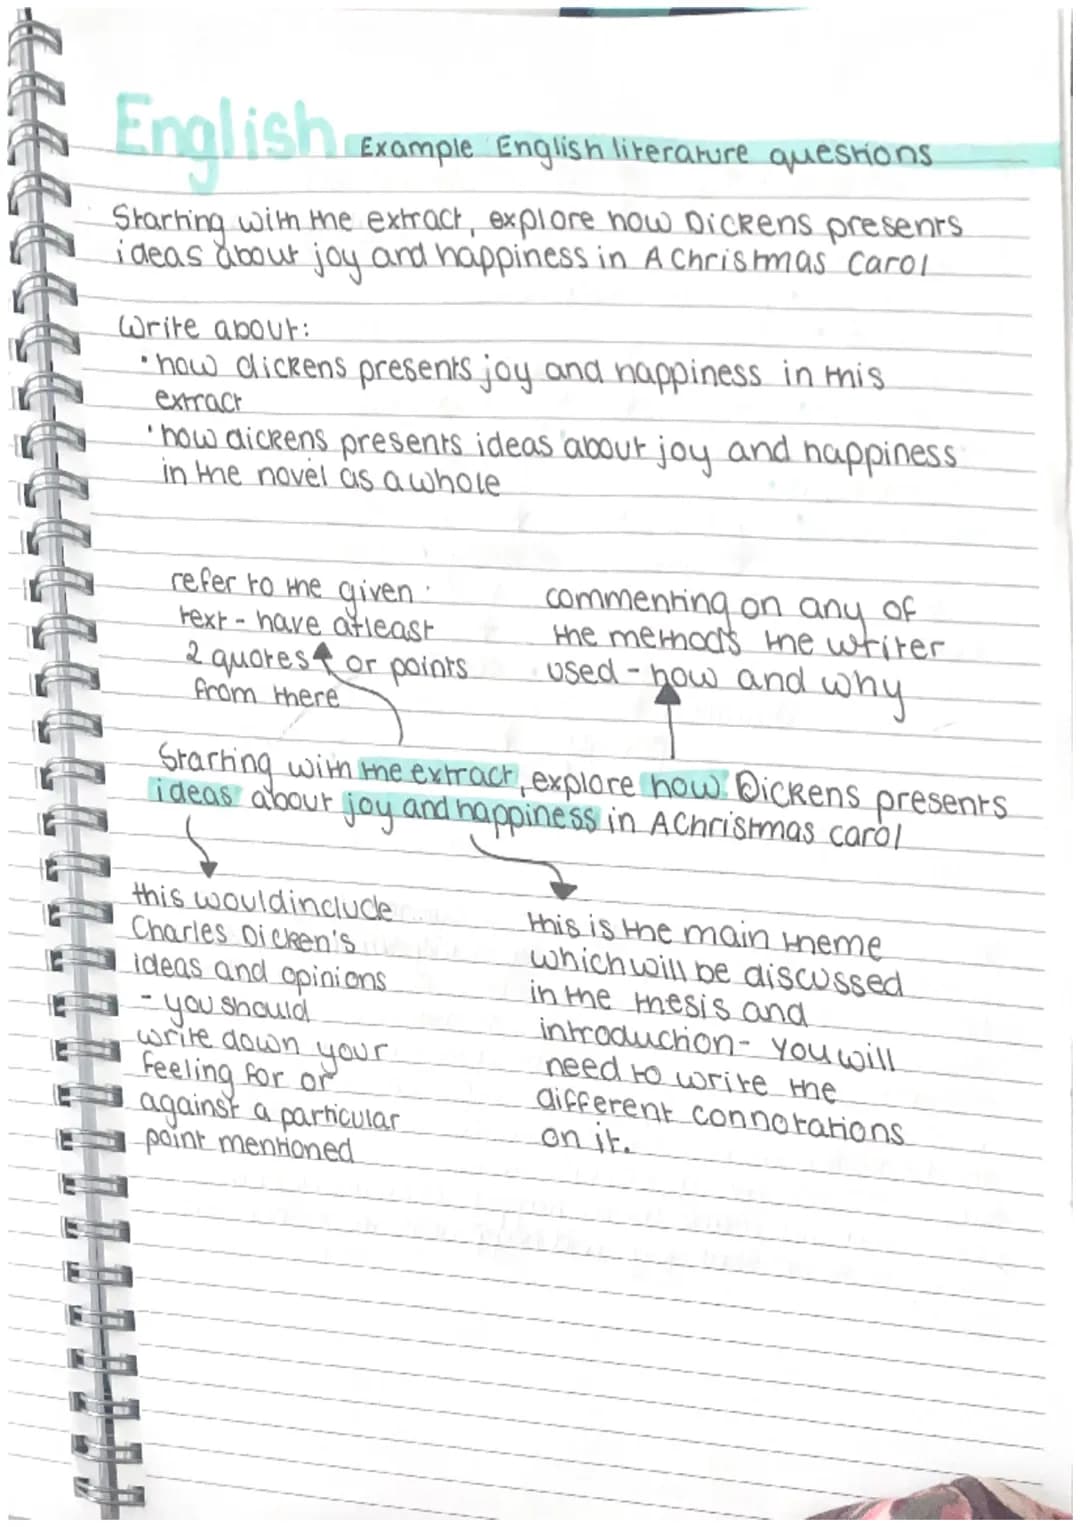 English Example English literature questions
Starting with the extract, explore how Dickens presents
ideas about joy and happiness in A Christmas Carol
Write about:
• how dickens presents joy and happiness in this
extract
• how dickens presents ideas about joy and happiness
in the novel as a whole
refer to the given
text - have atleast
2 quotes or points
from there
commenting on any of
the methods the writer
used - how and why
Starting with the extract, explore how Dickens presents
ideas about joy and happiness in A Christmas carol
this would include
Charles Dicken's
ideas and opinions
- you should
write down your
feeling for or
against a particular
point mentioned
this is the main theme
which will be discussed
in the thesis and
introduction - you will
need to write the
different connotations
on it.